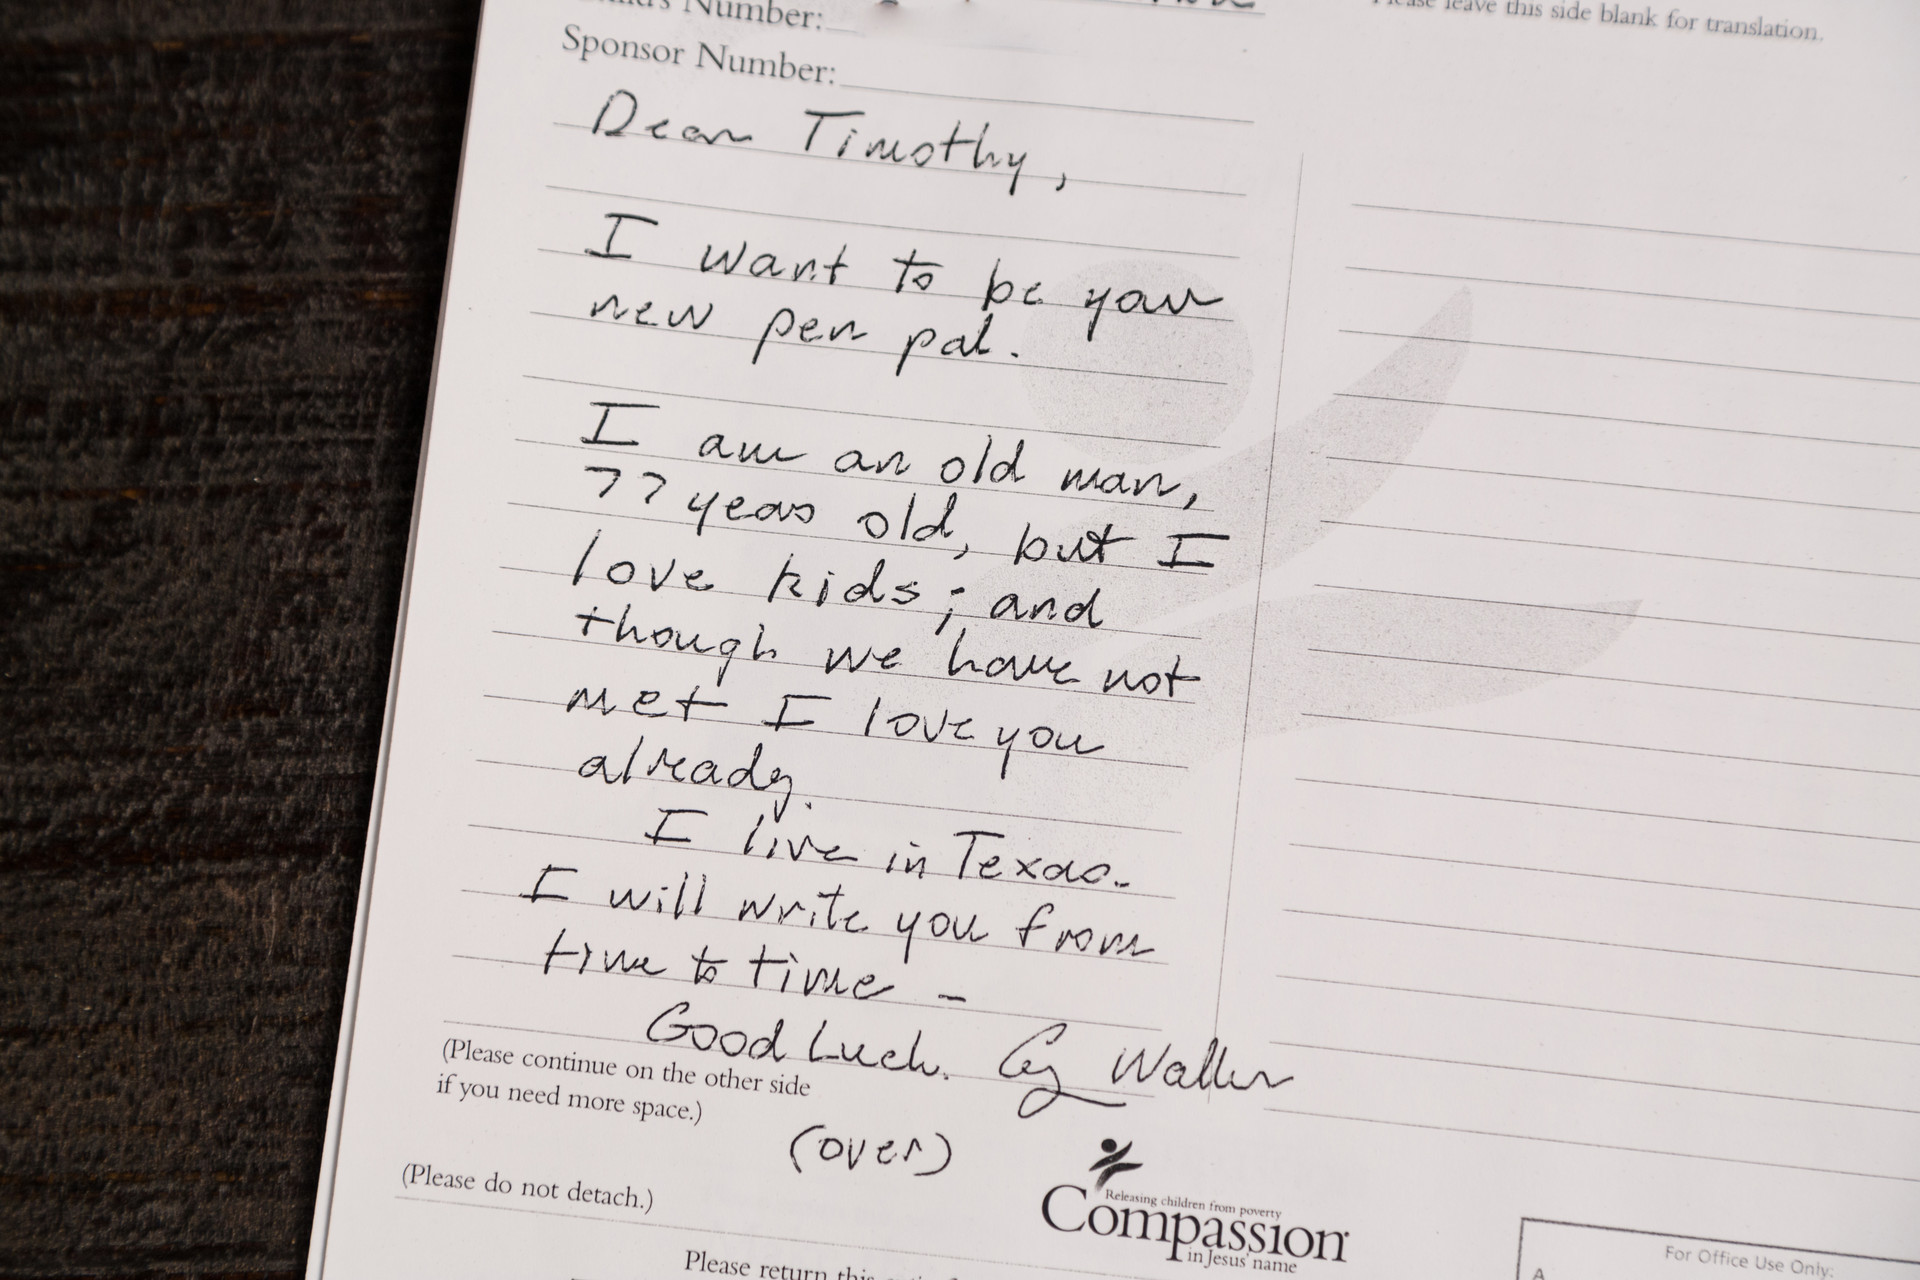 Number:
Please leave this side blank for translation.
Sponsor Number:
Dear Timothy,
I want to be your
new pen pal.
I am an old man,
77 years old, but I
love kids; and
though we have not
met I love you
already.
I live in Texas.
I will write you from
time to time -
Good Luck. Waller
(Please continue on the other side
if you need more space.)
(over)
(Please do not detach.)
Releasing children from poverty
Compassion
in Jesus' name
For Office Use Only:
A
Please return this